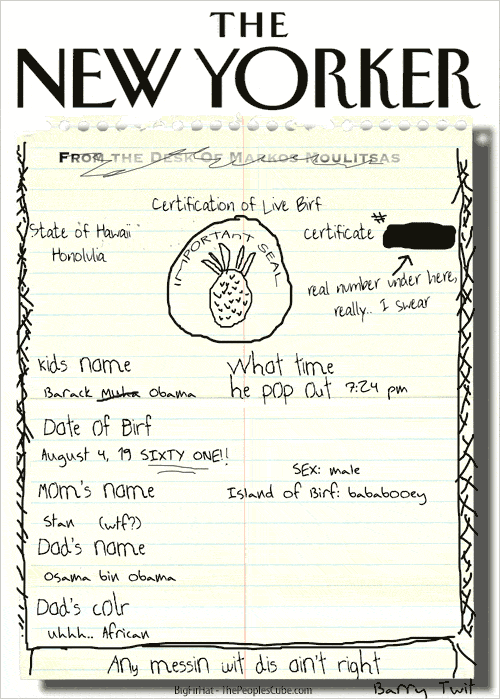 THE
NEW YORKER
FROM THE DESK OF MARKOS MOULITSAS
Certification of Live Birf
State of Hawaii
Honolulia
IMPORTANT SEAL
certificate #
real number under here,
really.. I swear
Kids name
Barack Muha Obama
What time
he pop out 7:24 pm
Date of Birf
August 4, 19 SIXTY ONE!!
SEX: male
Mom's name
Island of Birf: bababooey
Stan (wtf?)
Dad's name
Osama bin Obama
Dad's colr
uhhh.. African
Any messin wit dis ain't right
Barry Twit
BigFurHat - ThePeoplesCube.com